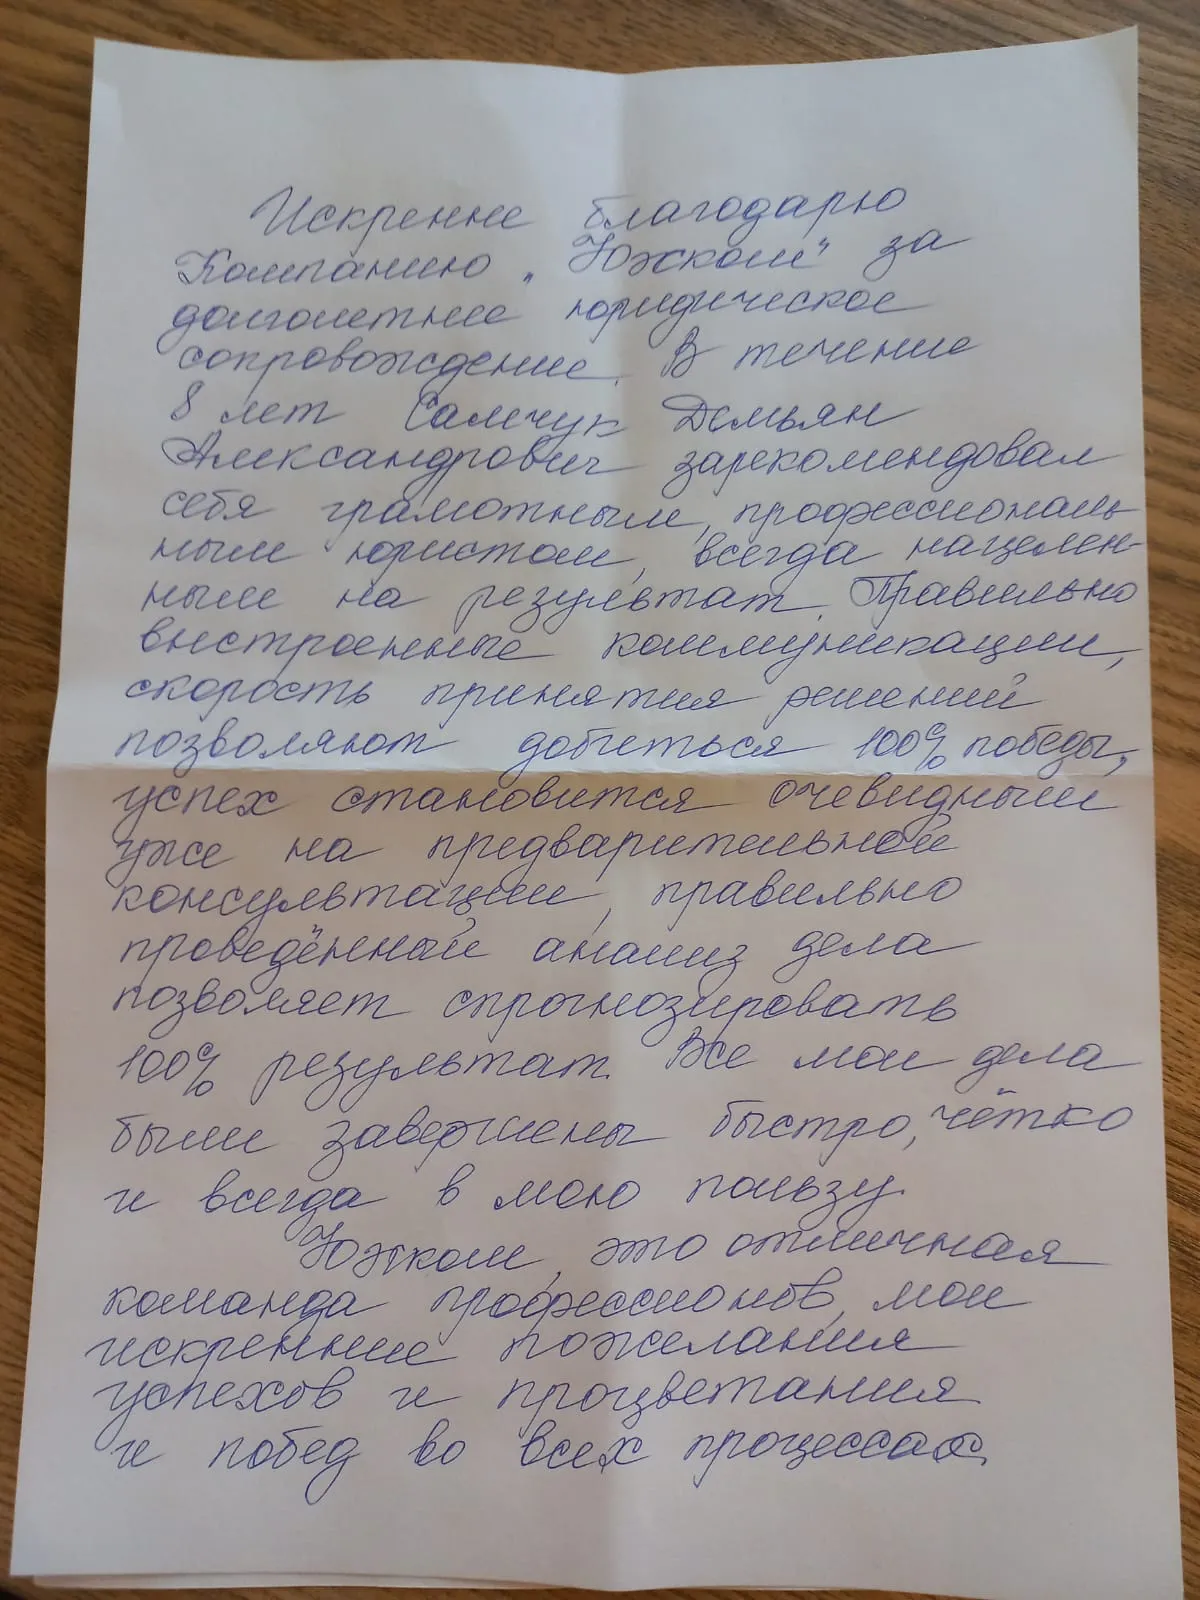 Искренне благодарю
Компанию „Южком" за
долголетнее юридическое
сопровождение. В течение
8 лет Самчук Демьян
Александрович зарекомендовал
себя грамотным, профессиональ
ным юристом, всегда нацелен-
ным на результат. Правильно
выстроенные коммуникации,
скорость принятия решений
позволяют добиться 100% победы,
успех становится очевидным
уже на предварительной
консультации, правильно
проведённый анализ дела
позволяет спрогнозировать
100% результат. Все мои дела
были завершены быстро, чётко
и всегда в мою пользу.
Южком, это отличная
команда профессионов, мои
искренние пожелания
успехов и процветания
и побед во всех процессах.